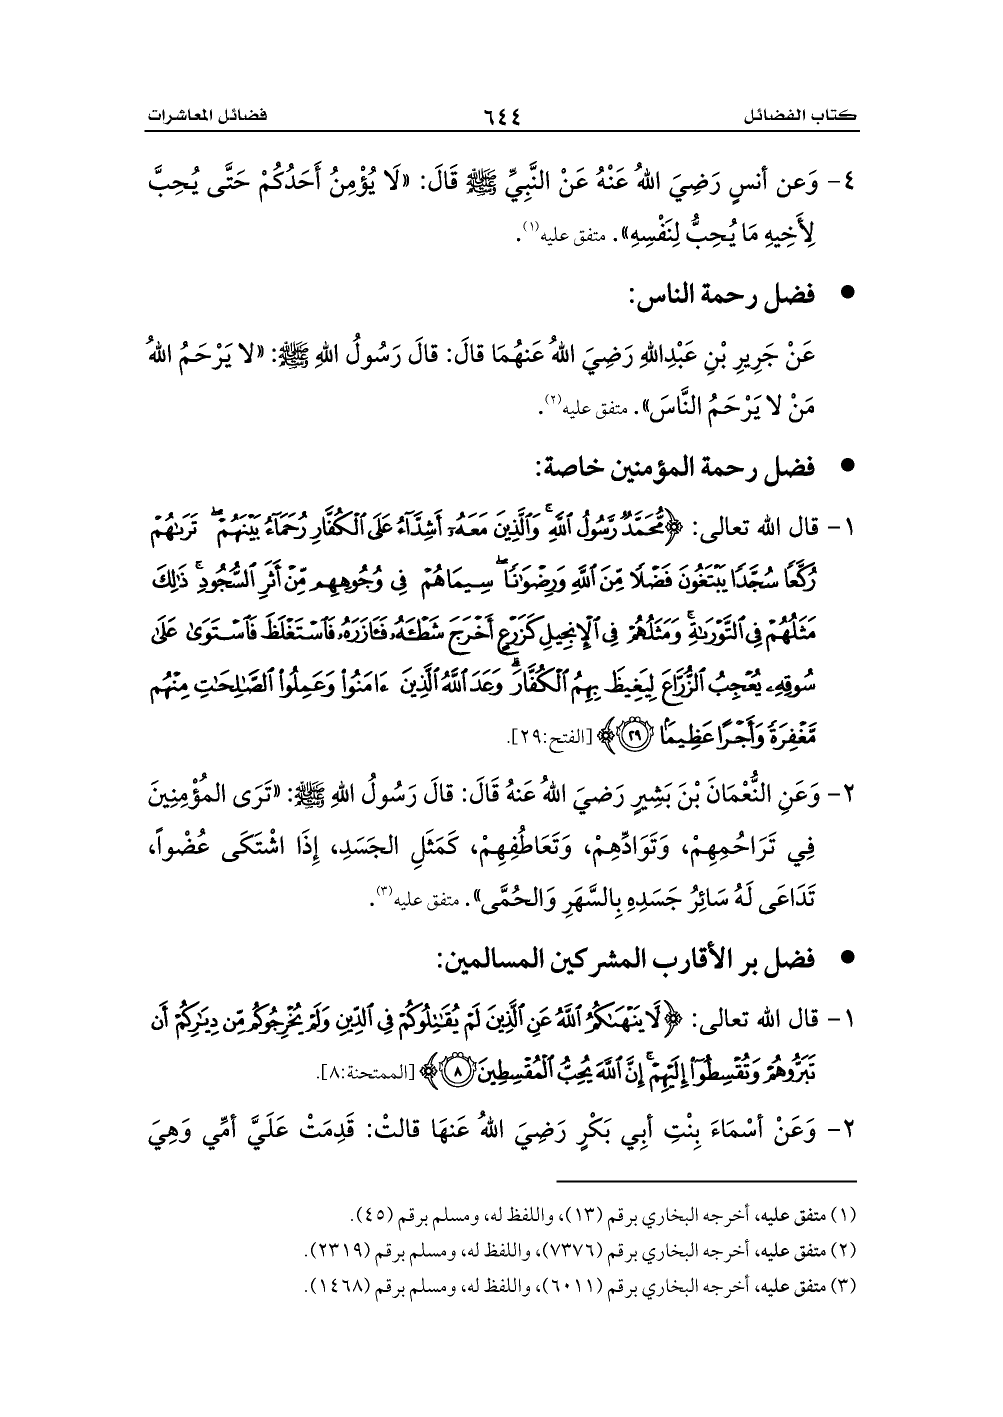 كتاب الفضائل ٦٤٤ فضائل المعاشرات
٤- وَعن أنسٍ رَضِيَ اللهُ عَنْهُ عَنْ النَّبِيِّ ﷺ قَالَ: «لَا يُؤْمِنُ أَحَدُكُمْ حَتَّى يُحِبَّ
لِأَخِيهِ مَا يُحِبُّ لِنَفْسِهِ». متفق عليه(١).
● فضل رحمة الناس:
عَنْ جَرِيرِ بْنِ عَبْدِاللهِ رَضِيَ اللهُ عَنهُمَا قالَ: قالَ رَسُولُ اللهِ ﷺ: «لا يَرْحَمُ اللهُ
مَنْ لا يَرْحَمُ النَّاسَ». متفق عليه(٢).
● فضل رحمة المؤمنين خاصة:
١- قال الله تعالى: ﴿مُّحَمَّدٌ رَّسُولُ ٱللَّهِۚ وَٱلَّذِينَ مَعَهُۥٓ أَشِدَّآءُ عَلَى ٱلْكُفَّارِ رُحَمَآءُ بَيْنَهُمْۖ تَرَىٰهُمْ
رُكَّعًا سُجَّدًا يَبْتَغُونَ فَضْلًا مِّنَ ٱللَّهِ وَرِضْوَٰنًاۖ سِيمَاهُمْ فِى وُجُوهِهِم مِّنْ أَثَرِ ٱلسُّجُودِۚ ذَٰلِكَ
مَثَلُهُمْ فِى ٱلتَّوْرَىٰةِۚ وَمَثَلُهُمْ فِى ٱلْإِنجِيلِ كَزَرْعٍ أَخْرَجَ شَطْـَٔهُۥ فَـَٔازَرَهُۥ فَٱسْتَغْلَظَ فَٱسْتَوَىٰ عَلَىٰ
سُوقِهِۦ يُعْجِبُ ٱلزُّرَّاعَ لِيَغِيظَ بِهِمُ ٱلْكُفَّارَۗ وَعَدَ ٱللَّهُ ٱلَّذِينَ ءَامَنُوا۟ وَعَمِلُوا۟ ٱلصَّٰلِحَٰتِ مِنْهُم
مَّغْفِرَةً وَأَجْرًا عَظِيمًا ٢٩﴾ [الفتح:٢٩].
٢- وَعَنِ النُّعْمَانَ بْنَ بَشِيرٍ رَضيَ اللهُ عَنهُ قَالَ: قالَ رَسُولُ اللهِ ﷺ: «تَرَى المُؤْمِنِينَ
فِي تَرَاحُمِهِمْ، وَتَوَادِّهِمْ، وَتَعَاطُفِهِمْ، كَمَثَلِ الجَسَدِ، إِذَا اشْتَكَى عُضْواً،
تَدَاعَى لَهُ سَائِرُ جَسَدِهِ بِالسَّهَرِ وَالحُمَّى». متفق عليه(٣).
● فضل بر الأقارب المشركين المسالمين:
١- قال الله تعالى: ﴿لَّا يَنْهَىٰكُمُ ٱللَّهُ عَنِ ٱلَّذِينَ لَمْ يُقَٰتِلُوكُمْ فِى ٱلدِّينِ وَلَمْ يُخْرِجُوكُم مِّن دِيَٰرِكُمْ أَن
تَبَرُّوهُمْ وَتُقْسِطُوٓا۟ إِلَيْهِمْۚ إِنَّ ٱللَّهَ يُحِبُّ ٱلْمُقْسِطِينَ ٨﴾ [الممتحنة:٨].
٢- وَعَنْ أسْمَاءَ بِنْتِ أبِي بَكْرٍ رَضِيَ اللهُ عَنهَا قالتْ: قَدِمَتْ عَلَيَّ أمِّي وَهِيَ
(١) متفق عليه، أخرجه البخاري برقم (١٣)، واللفظ له، ومسلم برقم (٤٥).
(٢) متفق عليه، أخرجه البخاري برقم (٧٣٧٦)، واللفظ له، ومسلم برقم (٢٣١٩).
(٣) متفق عليه، أخرجه البخاري برقم (٦٠١١)، واللفظ له، ومسلم برقم (١٤٦٨).